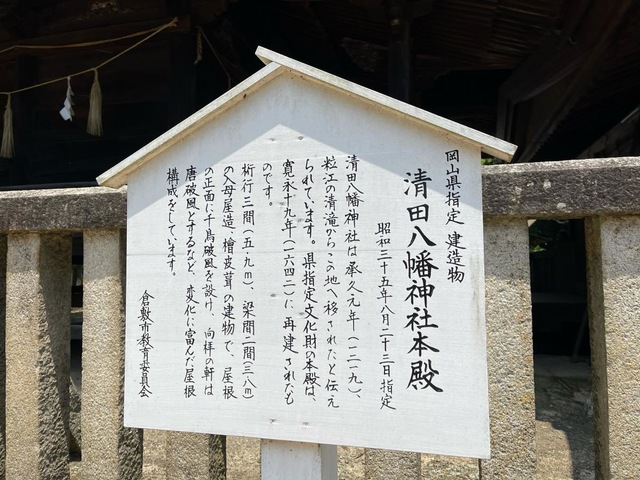 岡山県指定 建造物
清田八幡神社本殿
昭和三十五年八月二十三日指定
清田八幡神社は承久元年（一二一九）、
粒江の清滝からこの地へ移されたと伝え
られています。県指定文化財の本殿は、
寛永十九年（一六四二）に再建されたも
のです。
桁行三間（五・九ｍ）、梁間二間（三・八ｍ）
の入母屋造、檜皮葺の建物で、屋根
の正面に千鳥破風を設け、向拝の軒は
唐破風とするなど、変化に富んだ屋根
構成をしています。
倉敷市教育委員会